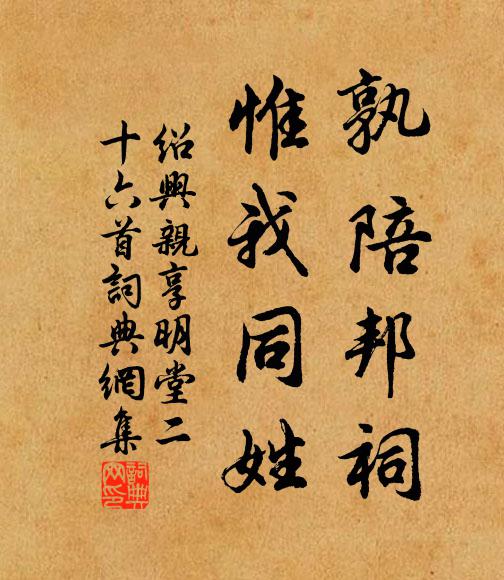 孰陪邦祠
惟我同姓
紹興親享明堂二
十六首詞典網集